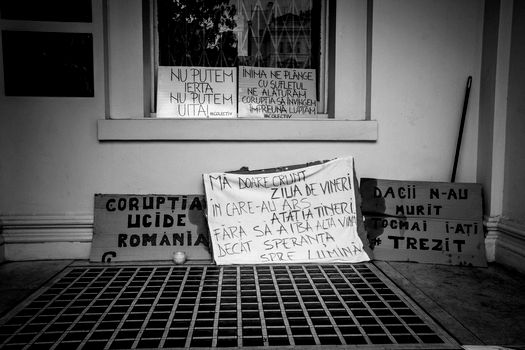 NU PUTEM
IERTA
NU PUTEM
UITA!
#COLECTIV
INIMA NE PLÂNGE
CU SUFLETUL
NE ALĂTURAM
CORUPȚIA SĂ ÎNVINGEM
ÎMPREUNĂ LUPTĂM
#COLECTIV
CORUPȚIA
UCIDE
ROMÂNIA
MĂ DOARE CRUNT
ZIUA DE VINERI
ÎN CARE-AU ARS
ATÂȚIA TINERI
FĂRĂ SĂ AIBĂ ALTĂ VINĂ
DECÂT SPERANȚA
SPRE LUMINĂ
DACII N-AU
MURIT
TOCMAI I-AȚI
# TREZIT